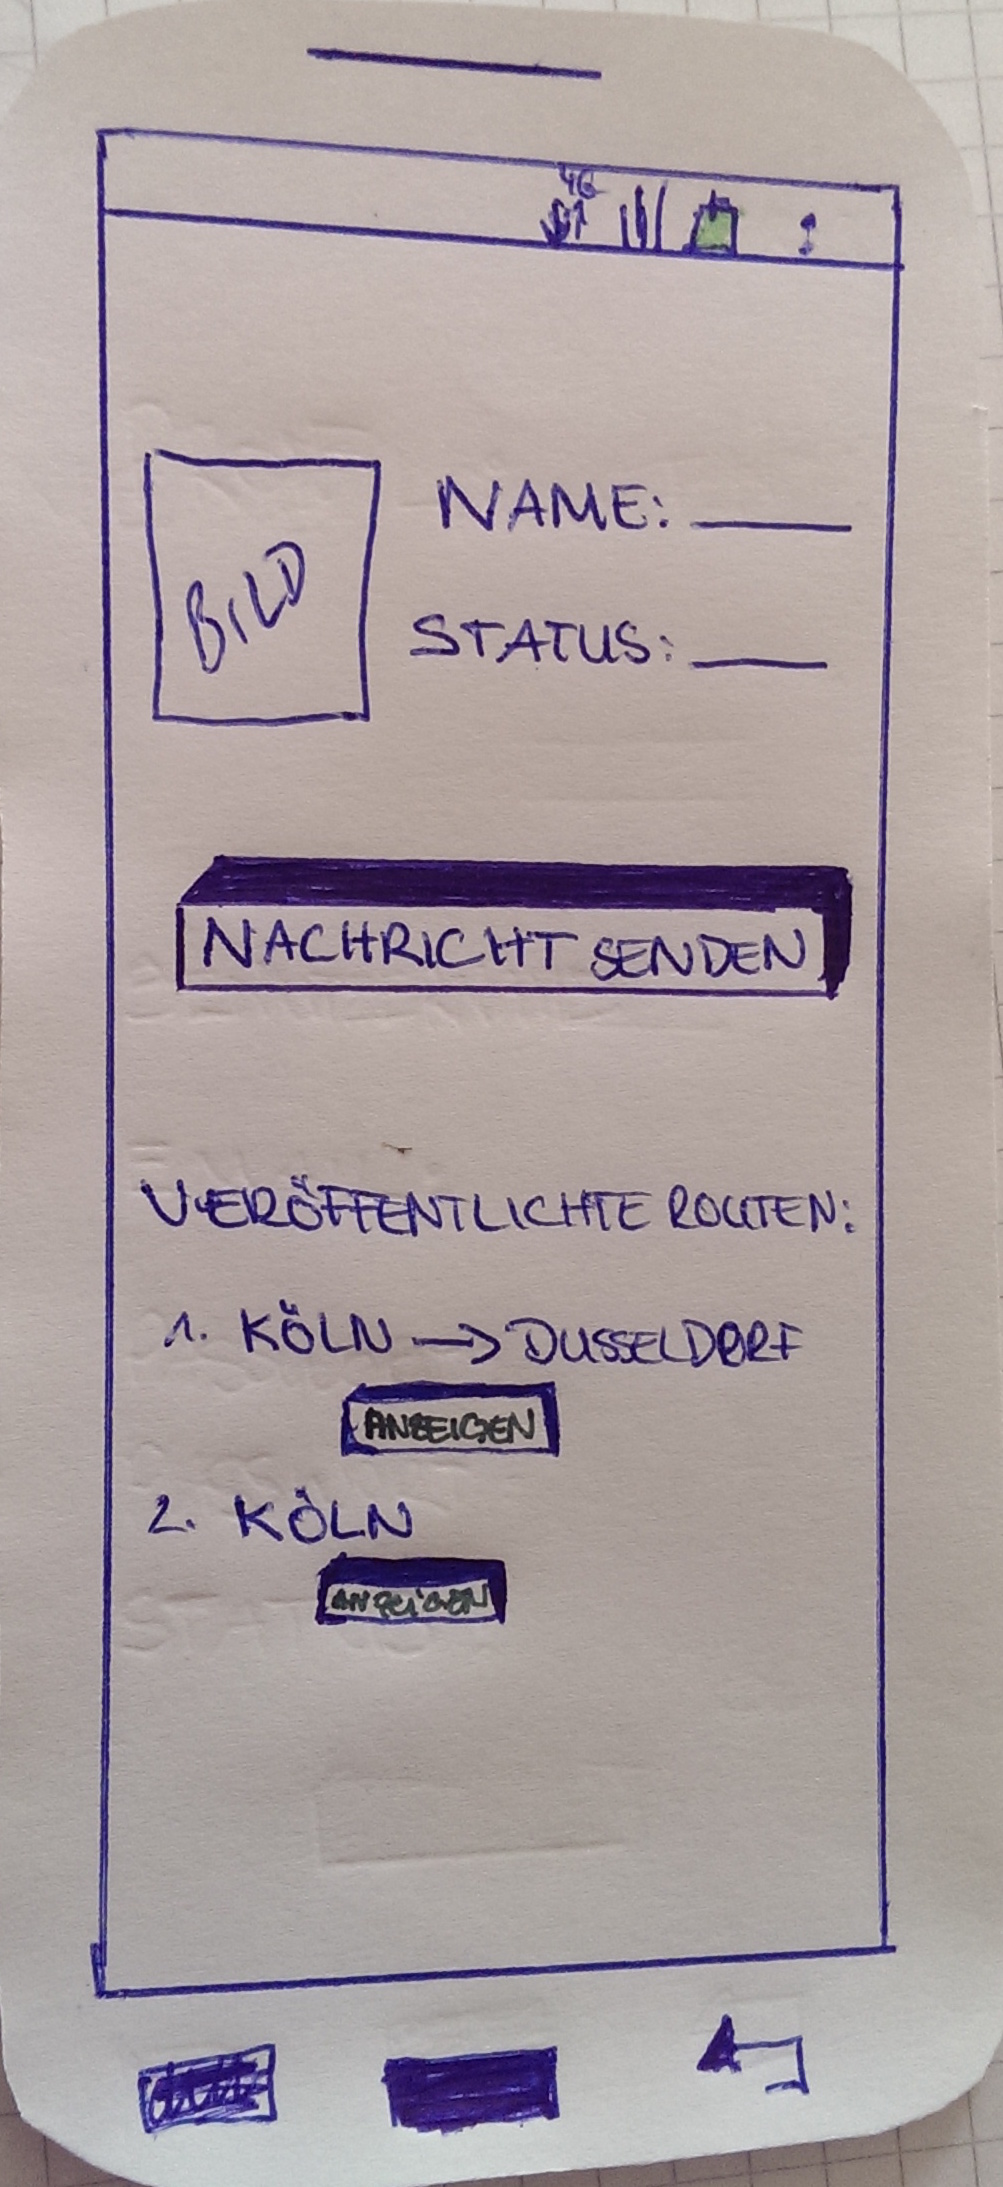 4G
BILD
NAME:
STATUS:
NACHRICHT SENDEN
VERÖFFENTLICHTE ROUTEN:
1. KÖLN → DUSSELDORF
ANZEIGEN
2. KÖLN
ANZEIGEN